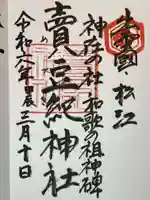 出雲國・松江
神在の社 和歌の祖神碑
賣豆紀神社
令和六年甲辰三月十日